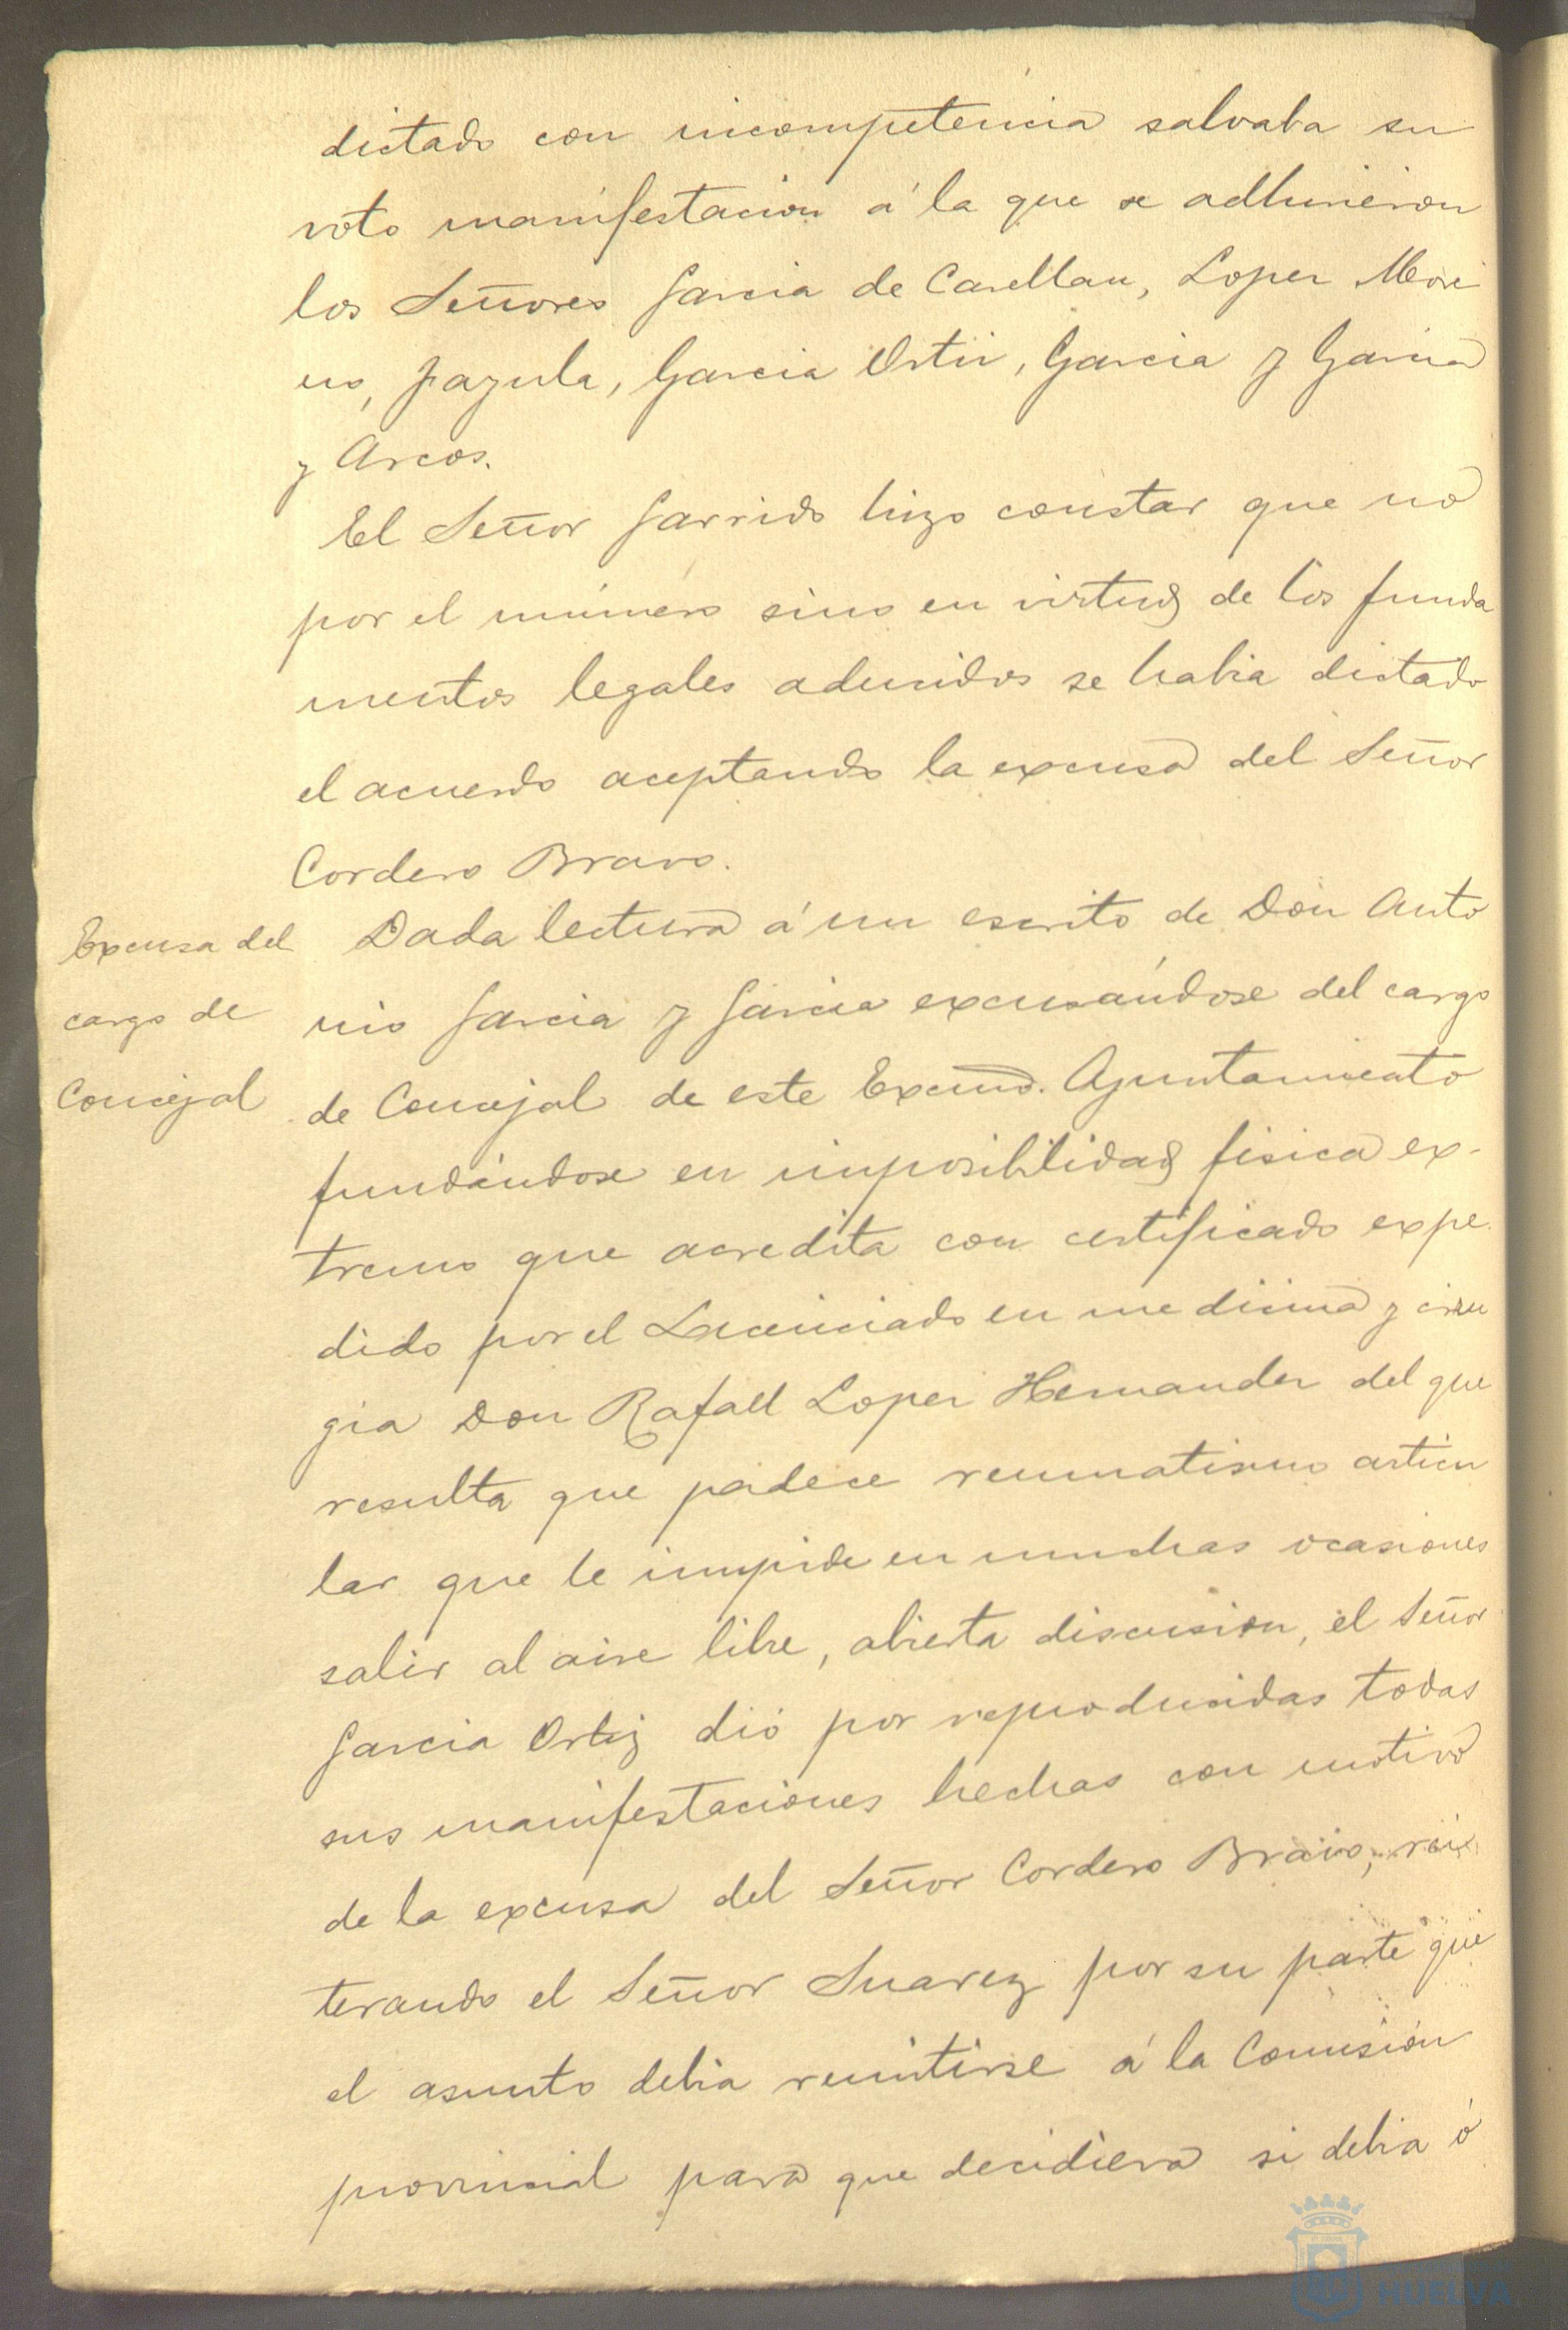 dictado con incompetencia salvaba su
voto manifestacion á la que se adhirieron
los Señores Garcia de Casellan, Lopez More
no, Jazula, Garcia Ortiz, Garcia y Garcia
y Arcos.
El Señor Garrido hizo constar que no
por el número sino en virtud de los funda
mentos legales aducidos se habia dictado
el acuerdo aceptando la excusa del Señor
Cordero Bravo.
Excusa del
cargo de
Concejal
Dada lectura á un escrito de Don Anto
nio Garcia y Garcia excusándose del cargo
de Concejal de este Excmo. Ayuntamiento
fundándose en imposibilidad fisica ex-
tremo que acredita con certificado expe-
dido por el Licenciado en medicina y ciru
gia Don Rafael Lopez Hernandez del que
resulta que padece reumatismo articu
lar que le impide en muchas ocasiones
salir al aire libre, abierta discusion, el Señor
Garcia Ortiz dió por reproducidas todas
sus manifestaciones hechas con motivo
de la excusa del Señor Cordero Bravo, rei
terando el Señor Suarez por su parte que
el asunto debia remitirse á la Comision
provincial para que decidiera si debia ó
HUELVA